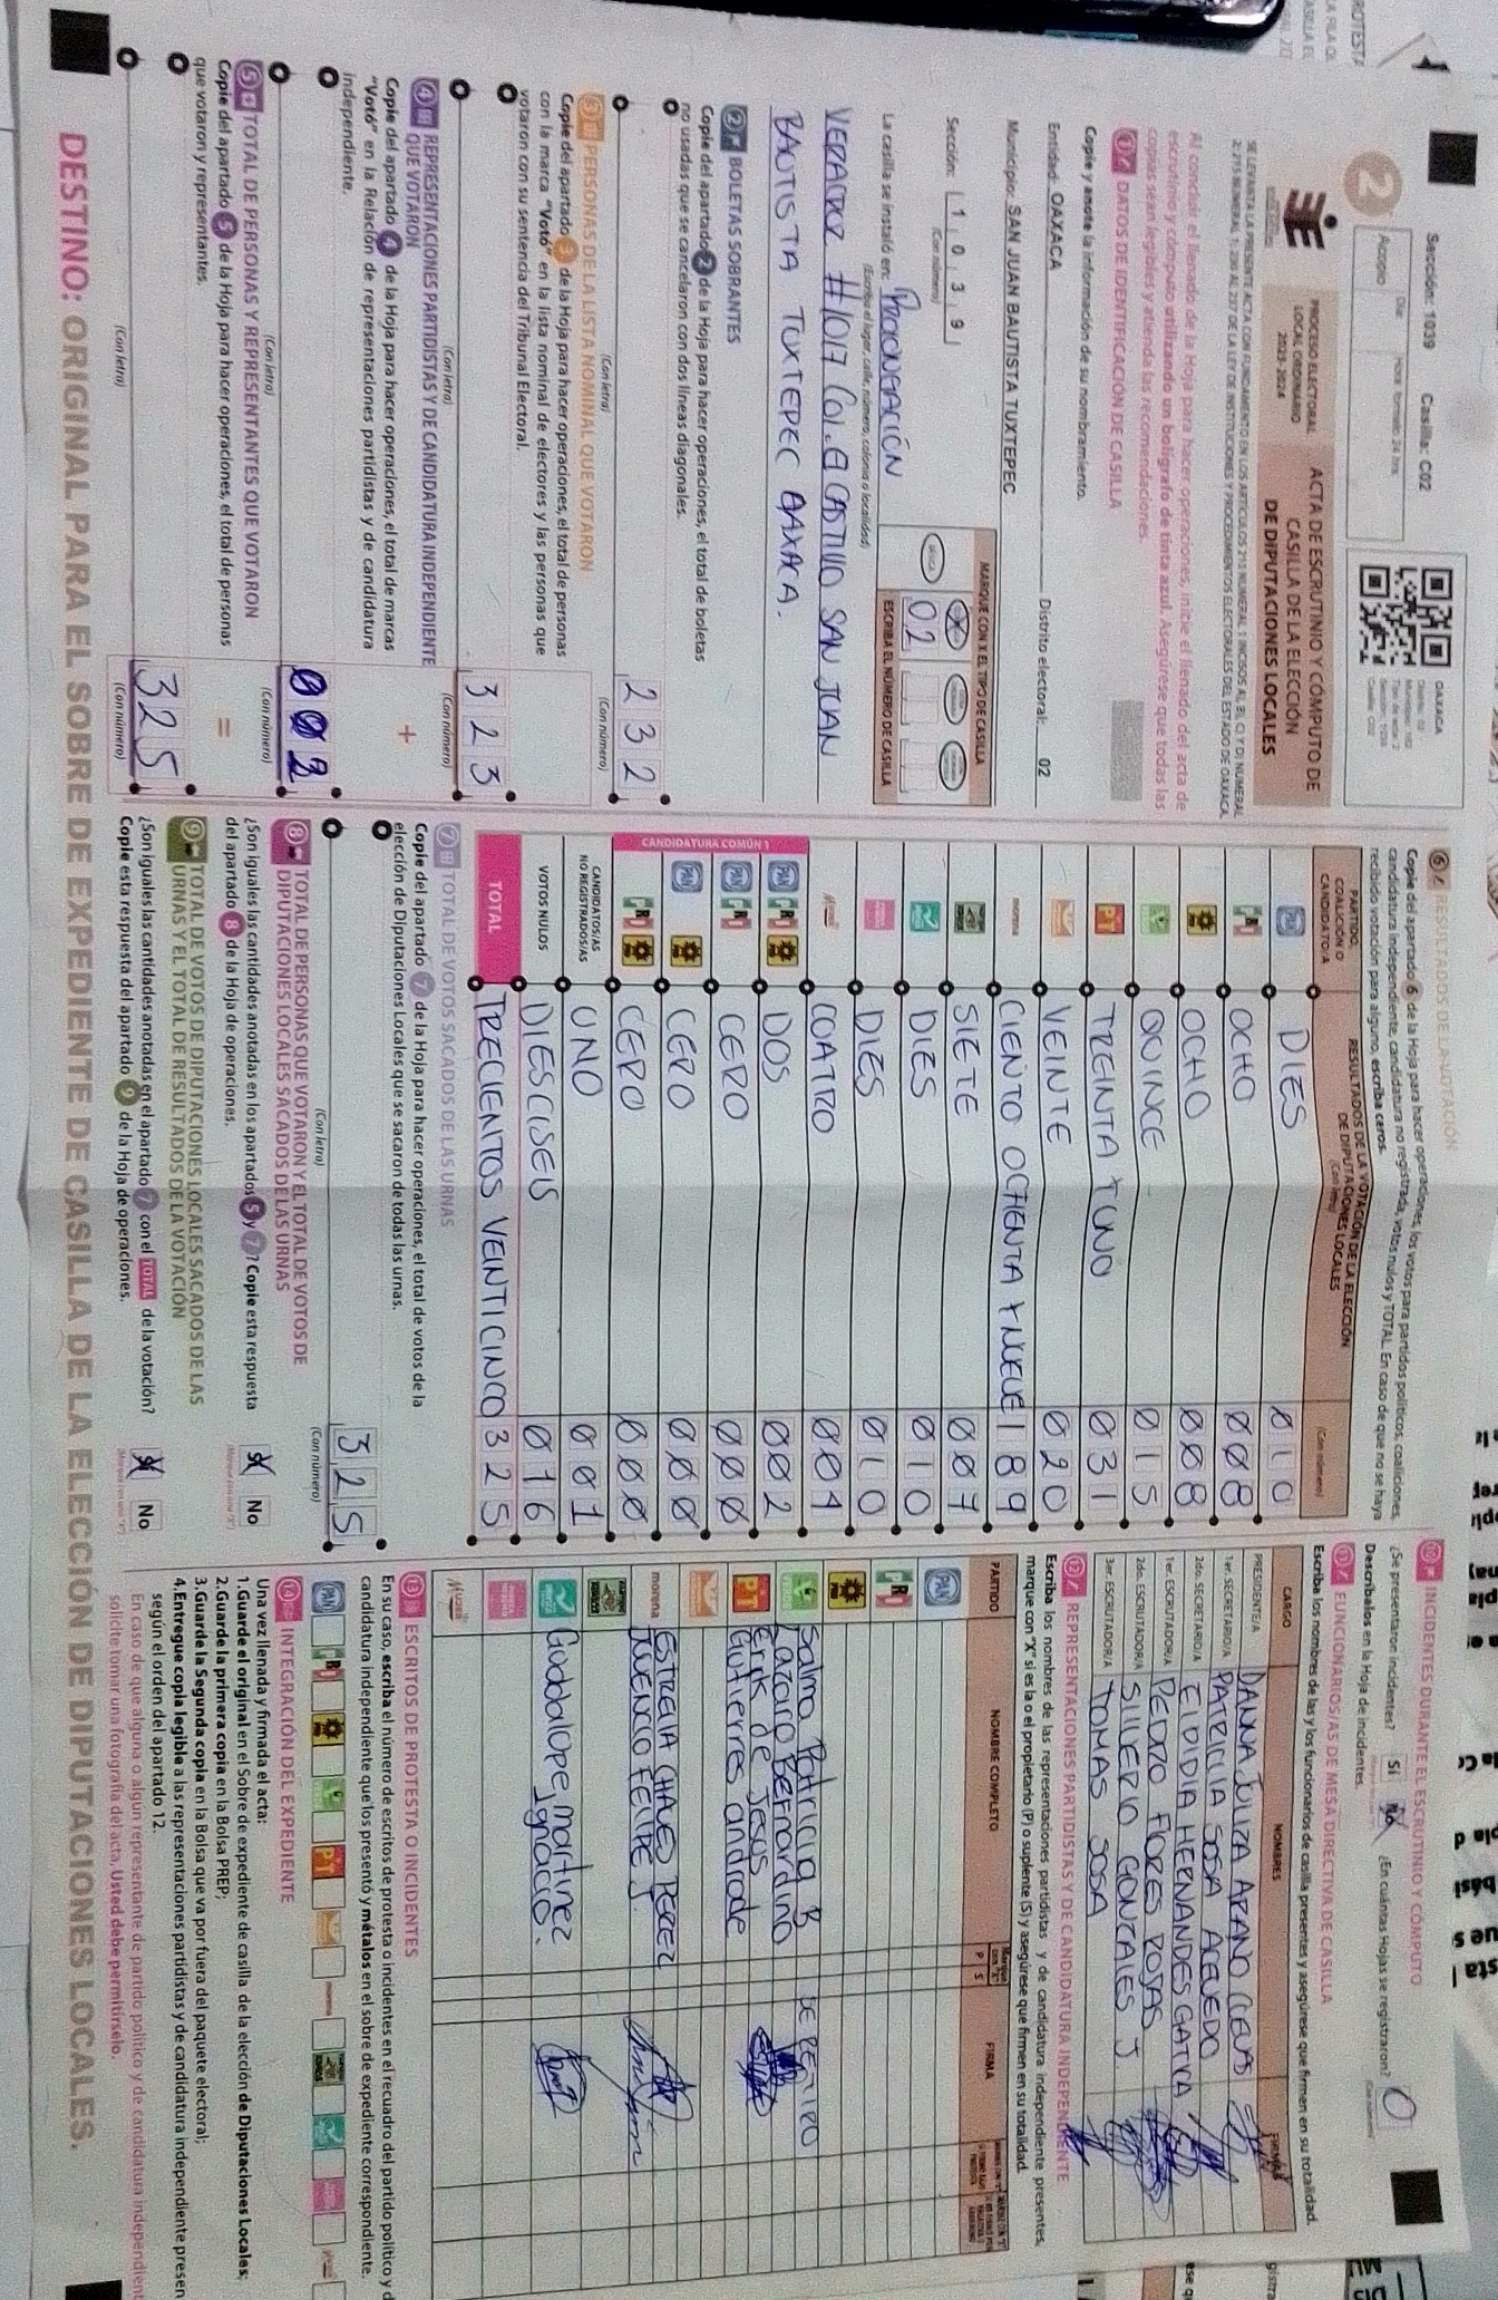 Sección: 1039 Casilla: C02
OAXACA
2
Acopio
Día
Hora formato 24 hrs.
PROCESO ELECTORAL
LOCAL ORDINARIO
2023-2024
ACTA DE ESCRUTINIO Y CÓMPUTO DE
CASILLA DE LA ELECCIÓN
DE DIPUTACIONES LOCALES
Al concluir el llenado de la Hoja para hacer operaciones, inicie el llenado del acta de
escrutinio y cómputo utilizando un bolígrafo de tinta azul. Asegúrese que todas las
copias sean legibles y atienda las recomendaciones.
1 DATOS DE IDENTIFICACIÓN DE CASILLA
Copie y anote la información de su nombramiento.
Entidad: OAXACA Distrito electoral: 02
Municipio: SAN JUAN BAUTISTA TUXTEPEC
Sección: 1 0 3 9
(Con número)
MARQUE CON X EL TIPO DE CASILLA
02
ESCRIBA EL NÚMERO DE CASILLA
La casilla se instaló en: PROLONGACIÓN
(Escriba el lugar, calle, número, colonia o localidad)
VERACRUZ #1017 COL. EL CASTILLO SAN JUAN
BAUTISTA TUXTEPEC OAXACA.
2 BOLETAS SOBRANTES
Copie del apartado 2 de la Hoja para hacer operaciones, el total de boletas
no usadas que se cancelaron con dos líneas diagonales.
232
(Con letra) (Con número)
3 PERSONAS DE LA LISTA NOMINAL QUE VOTARON
Copie del apartado 3 de la Hoja para hacer operaciones, el total de personas
con la marca "Votó" en la lista nominal de electores y las personas que
votaron con su sentencia del Tribunal Electoral.
323
(Con letra) (Con número)
4 REPRESENTACIONES PARTIDISTAS Y DE CANDIDATURA INDEPENDIENTE
QUE VOTARON
+
Copie del apartado 4 de la Hoja para hacer operaciones, el total de marcas
"Votó" en la Relación de representaciones partidistas y de candidatura
independiente.
002
(Con letra) (Con número)
5 TOTAL DE PERSONAS Y REPRESENTANTES QUE VOTARON
=
Copie del apartado 5 de la Hoja para hacer operaciones, el total de personas
que votaron y representantes.
325
(Con letra) (Con número)
6 RESULTADOS DE LA VOTACIÓN
Copie del apartado 6 de la Hoja para hacer operaciones, los votos para partidos políticos, coaliciones,
candidatura independiente, candidatura no registrada, votos nulos y TOTAL. En caso de que no se haya
recibido votación para alguno, escriba ceros.
PARTIDO,
COALICIÓN O
CANDIDATO/A
RESULTADOS DE LA VOTACIÓN DE LA ELECCIÓN
DE DIPUTACIONES LOCALES
(Con letra) (Con número)
PAN DIES 010
PRI OCHO 008
PRD OCHO 008
QUINCE 015
PT TREINTA Y UNO 031
VEINTE 020
morena CIENTO OCHENTA Y NUEVE 189
SIETE 007
DIES 010
DIES 010
CUATRO 004
CANDIDATURA COMÚN 1
PAN PRI PRD DOS 002
PAN PRI CERO 000
PAN PRD CERO 000
PRI PRD CERO 000
CANDIDATOS/AS
NO REGISTRADOS/AS UNO 001
VOTOS NULOS DIESCISEIS 016
TOTAL TRECIENTOS VEINTICINCO 325
7 TOTAL DE VOTOS SACADOS DE LAS URNAS
Copie del apartado 7 de la Hoja para hacer operaciones, el total de votos de la
elección de Diputaciones Locales que se sacaron de todas las urnas.
325
(Con letra) (Con número)
8 TOTAL DE PERSONAS QUE VOTARON Y EL TOTAL DE VOTOS DE
DIPUTACIONES LOCALES SACADOS DE LAS URNAS
¿Son iguales las cantidades anotadas en los apartados 5 y 7? Copie esta respuesta
del apartado 8 de la Hoja de operaciones.
Sí No
9 TOTAL DE VOTOS DE DIPUTACIONES LOCALES SACADOS DE LAS
URNAS Y EL TOTAL DE RESULTADOS DE LA VOTACIÓN
¿Son iguales las cantidades anotadas en el apartado 7 con el TOTAL de la votación?
Copie esta respuesta del apartado 9 de la Hoja de operaciones.
Sí No
10 INCIDENTES DURANTE EL ESCRUTINIO Y CÓMPUTO
¿Se presentaron incidentes? Sí No ¿En cuántas Hojas se registraron? 0
Descríbalos en la Hoja de incidentes.
11 FUNCIONARIOS/AS DE MESA DIRECTIVA DE CASILLA
Escriba los nombres de las y los funcionarios de casilla presentes y asegúrese que firmen en su totalidad.
CARGO NOMBRES FIRMAS
PRESIDENTE/A DANNA JULIZA ARANO CUEVAS
1er. SECRETARIO/A PATRICIA SOSA ACEVEDO
2do. SECRETARIO/A ELDIDIA HERNANDES GATICA
1er. ESCRUTADOR/A PEDRO FLORES ROSAS
2do. ESCRUTADOR/A SILVERIO GONZALES J
3er. ESCRUTADOR/A TOMAS SOSA
12 REPRESENTACIONES PARTIDISTAS Y DE CANDIDATURA INDEPENDIENTE
Escriba los nombres de las representaciones partidistas y de candidatura independiente presentes,
marque con "X" si es la o el propietario (P) o suplente (S) y asegúrese que firmen en su totalidad.
PARTIDO NOMBRE COMPLETO P S FIRMA
PAN
PRI
PRD
Salma Patricia B SE RETIRO
Lazaro Bernardino
PT Erik de Jesus
Gutierres andrade
morena ESTRELLA CHAVES PEREZ
JUVENCIO FELIPE J.
Guadalupe martinez
Ignacio.
13 ESCRITOS DE PROTESTA O INCIDENTES
En su caso, escriba el número de escritos de protesta o incidentes en el recuadro del partido político y
candidatura independiente que los presentó y métalos en el sobre de expediente correspondiente.
PAN PRI PRD PT morena
14 INTEGRACIÓN DEL EXPEDIENTE
Una vez llenada y firmada el acta:
1.Guarde el original en el Sobre de expediente de casilla de la elección de Diputaciones Locales;
2.Guarde la primera copia en la Bolsa PREP;
3.Guarde la Segunda copia en la Bolsa que va por fuera del paquete electoral;
4.Entregue copia legible a las representaciones partidistas y de candidatura independiente presen
según el orden del apartado 12.
En caso de que alguna o algún representante de partido político y de candidatura independient
solicite tomar una fotografía del acta, Usted debe permitírselo.
DESTINO: ORIGINAL PARA EL SOBRE DE EXPEDIENTE DE CASILLA DE LA ELECCIÓN DE DIPUTACIONES LOCALES.